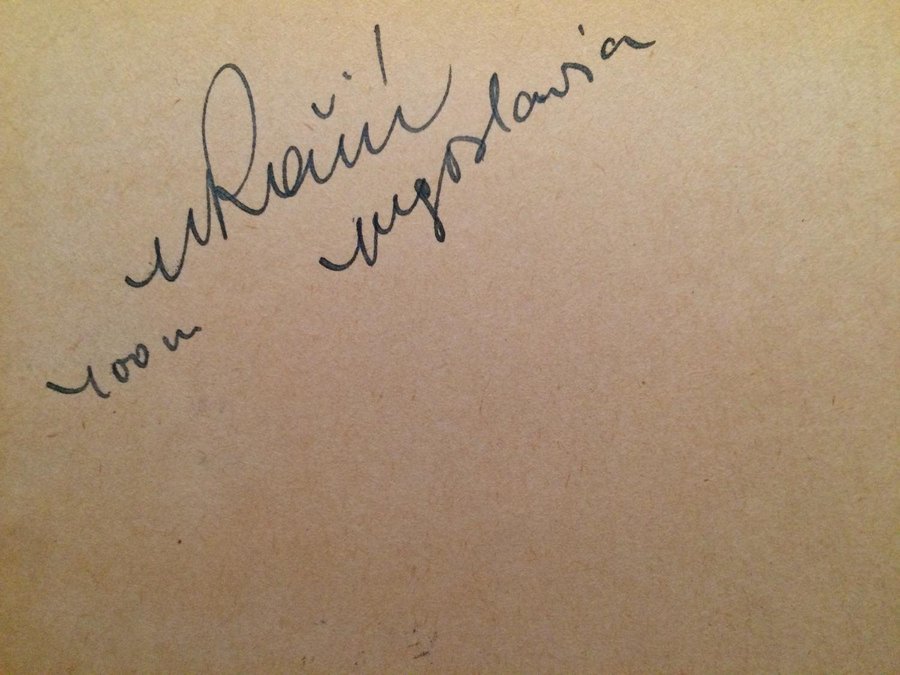 MRačić
Jugoslavia
100 m